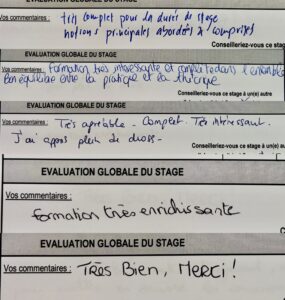 Vos commentaires : très complet pour la durée de stage
notions principales abordées & comprises
Conseilleriez-vous
EVALUATION GLOBALE DU STAGE
Conseilleriez-vous ce stage à un(e) autre
Vos commentaires : Formation très intéressante et complète dans l'ensemble
Bon équilibre entre la pratique et la théorique
EVALUATION GLOBALE DU STAGE
Vos commentaires : Très agréable - Complet. Très intéressant.
J'ai appris plein de choses -
Conseilleriez-vous ce stage à un(e) autre
EVALUATION GLOBALE DU STAGE
Vos commentaires :
Formation très enrichissante
EVALUATION GLOBALE DU STAGE
Vos commentaires :
TRÈS Bien, Merci !